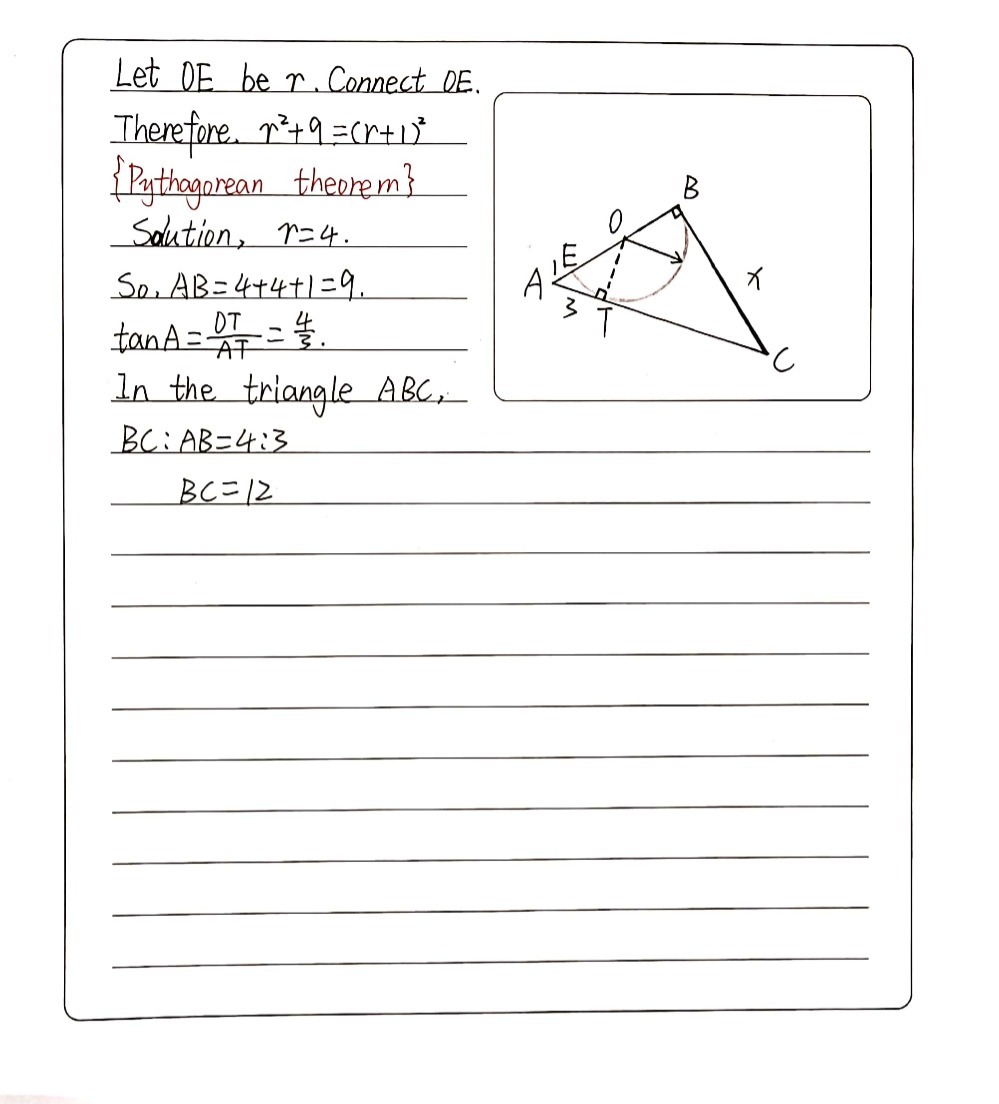 Let OE be r. Connect OE.
Therefore, r²+9=(r+1)²
{Pythagorean theorem}
Solution, r=4.
So, AB=4+4+1=9.
tanA=OT/AT=4/3.
In the triangle ABC,
BC:AB=4:3
BC=12
B
O
E
1
A
x
3
T
C